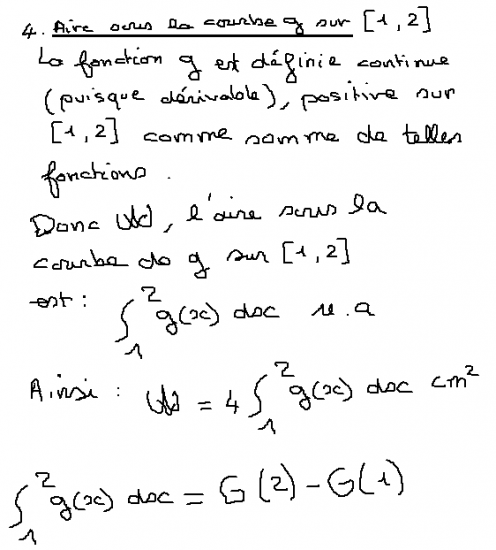 4. Aire sous la courbe g sur [1, 2]
La fonction g est définie continue
(puisque dérivable), positive sur
[1, 2] comme somme de telles
fonctions.
Donc 𝒜, l'aire sous la
courbe de g sur [1, 2]
est : ∫₁² g(x) dx u.a
Ainsi : 𝒜 = 4 ∫₁² g(x) dx cm²
∫₁² g(x) dx = G(2) - G(1)